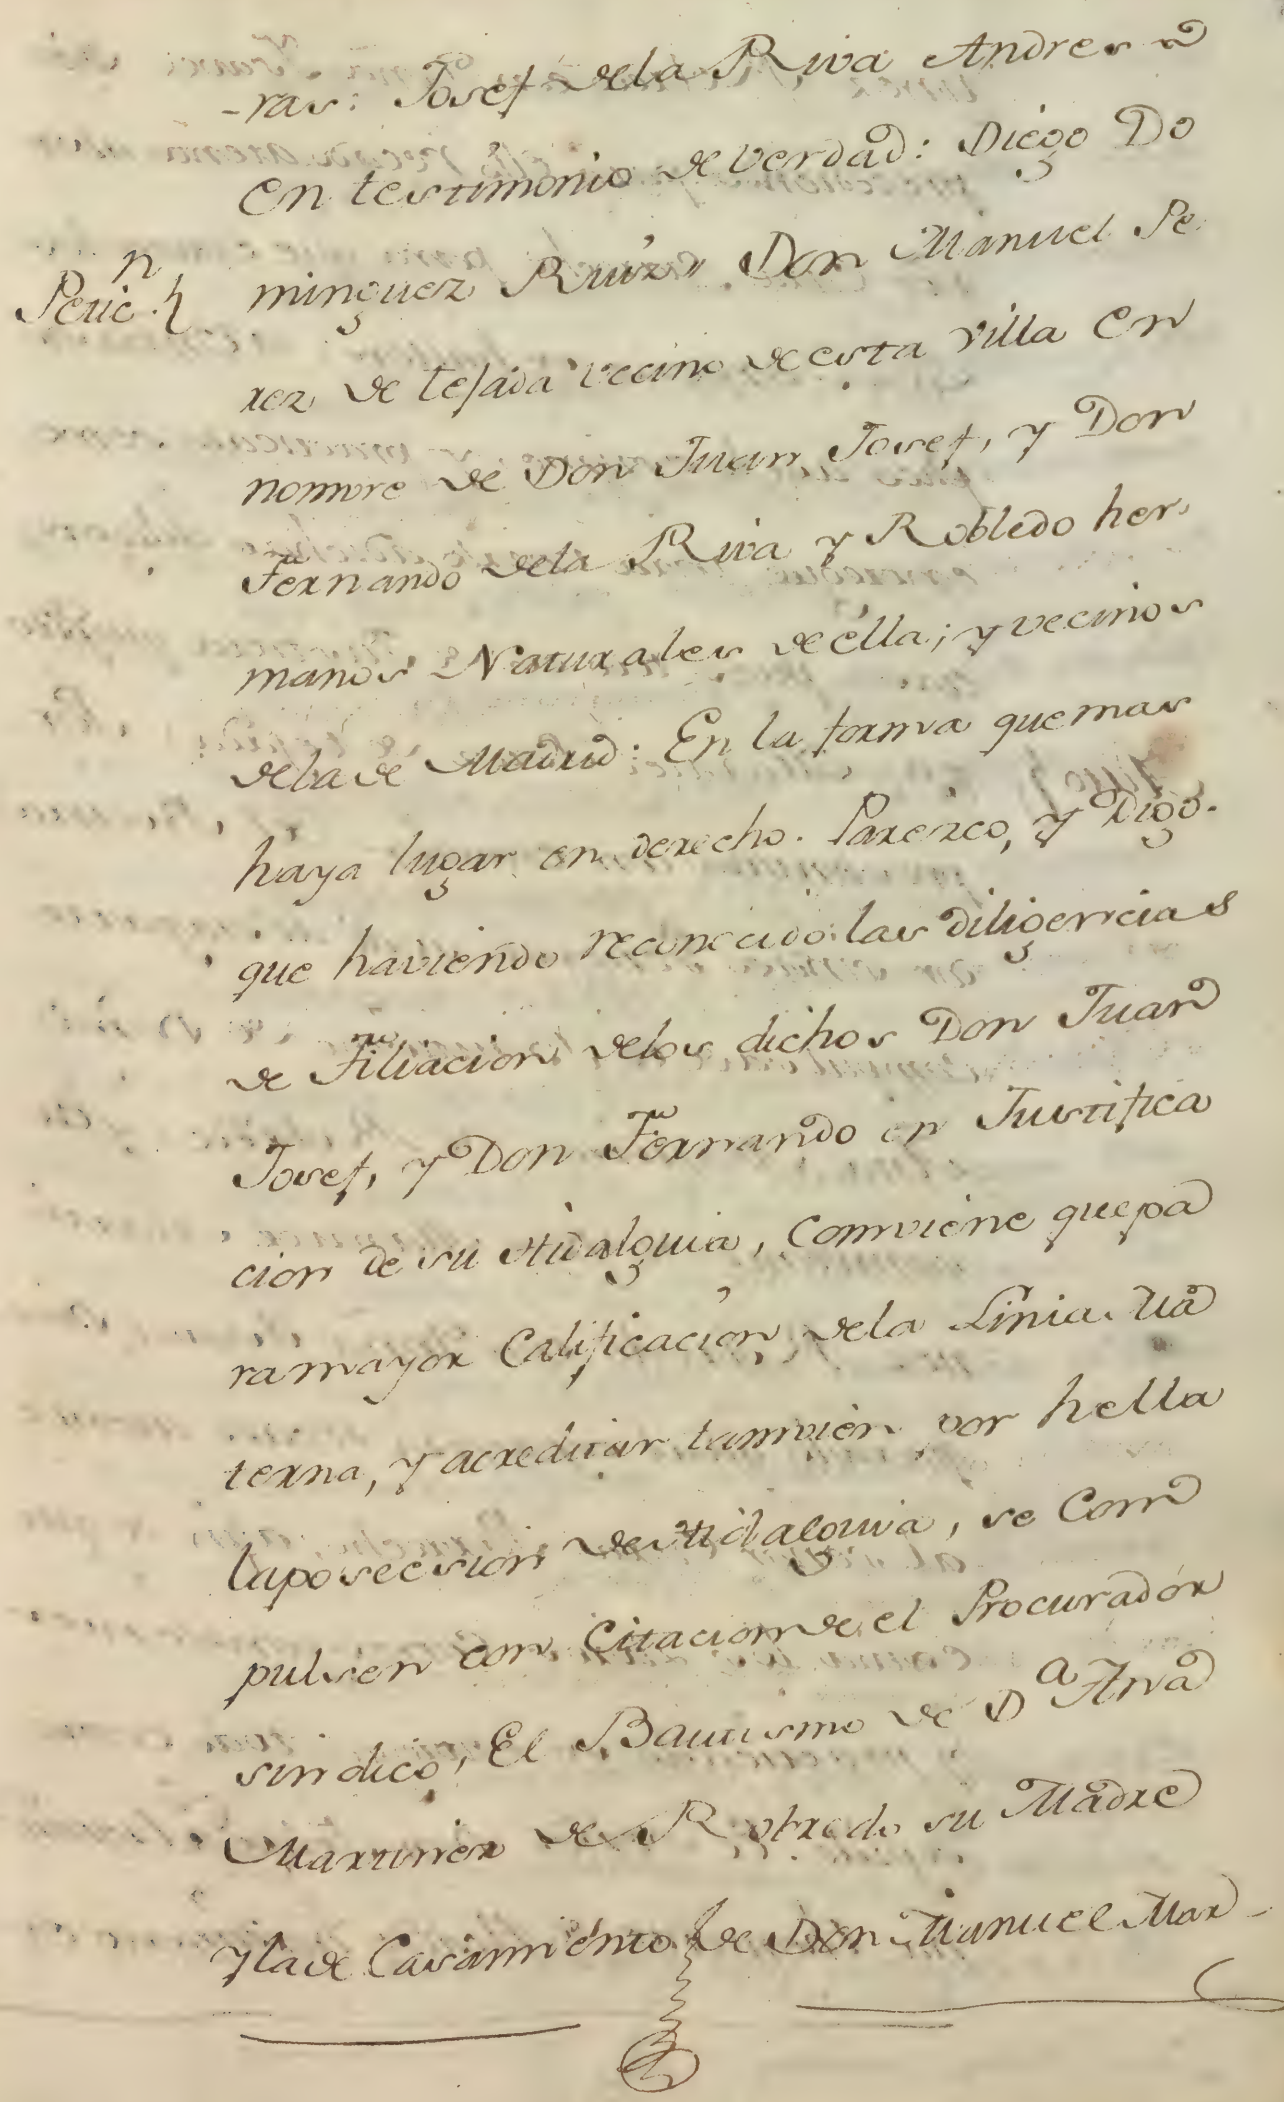 -ras: Josef dela Riva Andres
en testimonio de verdad: Diego Do
Petic.n
minguez Ruiz, Don Manuel Pe
rez de tejada vecino de esta villa en
nomvre de Don Juan Josef, y Don
Fernando dela Riva y Robledo her,
manos Naturales de ella; y vecinos
dela de Madrid: En la forma que mas
haya lugar en derecho. Parezco, y Digo.
que haviendo reconocido las diligencias
de Filiacion delos dichos Don Juan
Josef, y Don Fernando en Justifica
cion de su Hidalguia, comviene que pa
ra mayor Calificacion dela Linia. Ma
terna, y acreditar tamvien por hella
la posecsion de Hidalguia, se Com
pulsen con Citacion de el Procurador
sindico, El Bautismo de Da Ana
Martinez de Robredo su Madre
y la de Casamiento de Don Manuel Mar-